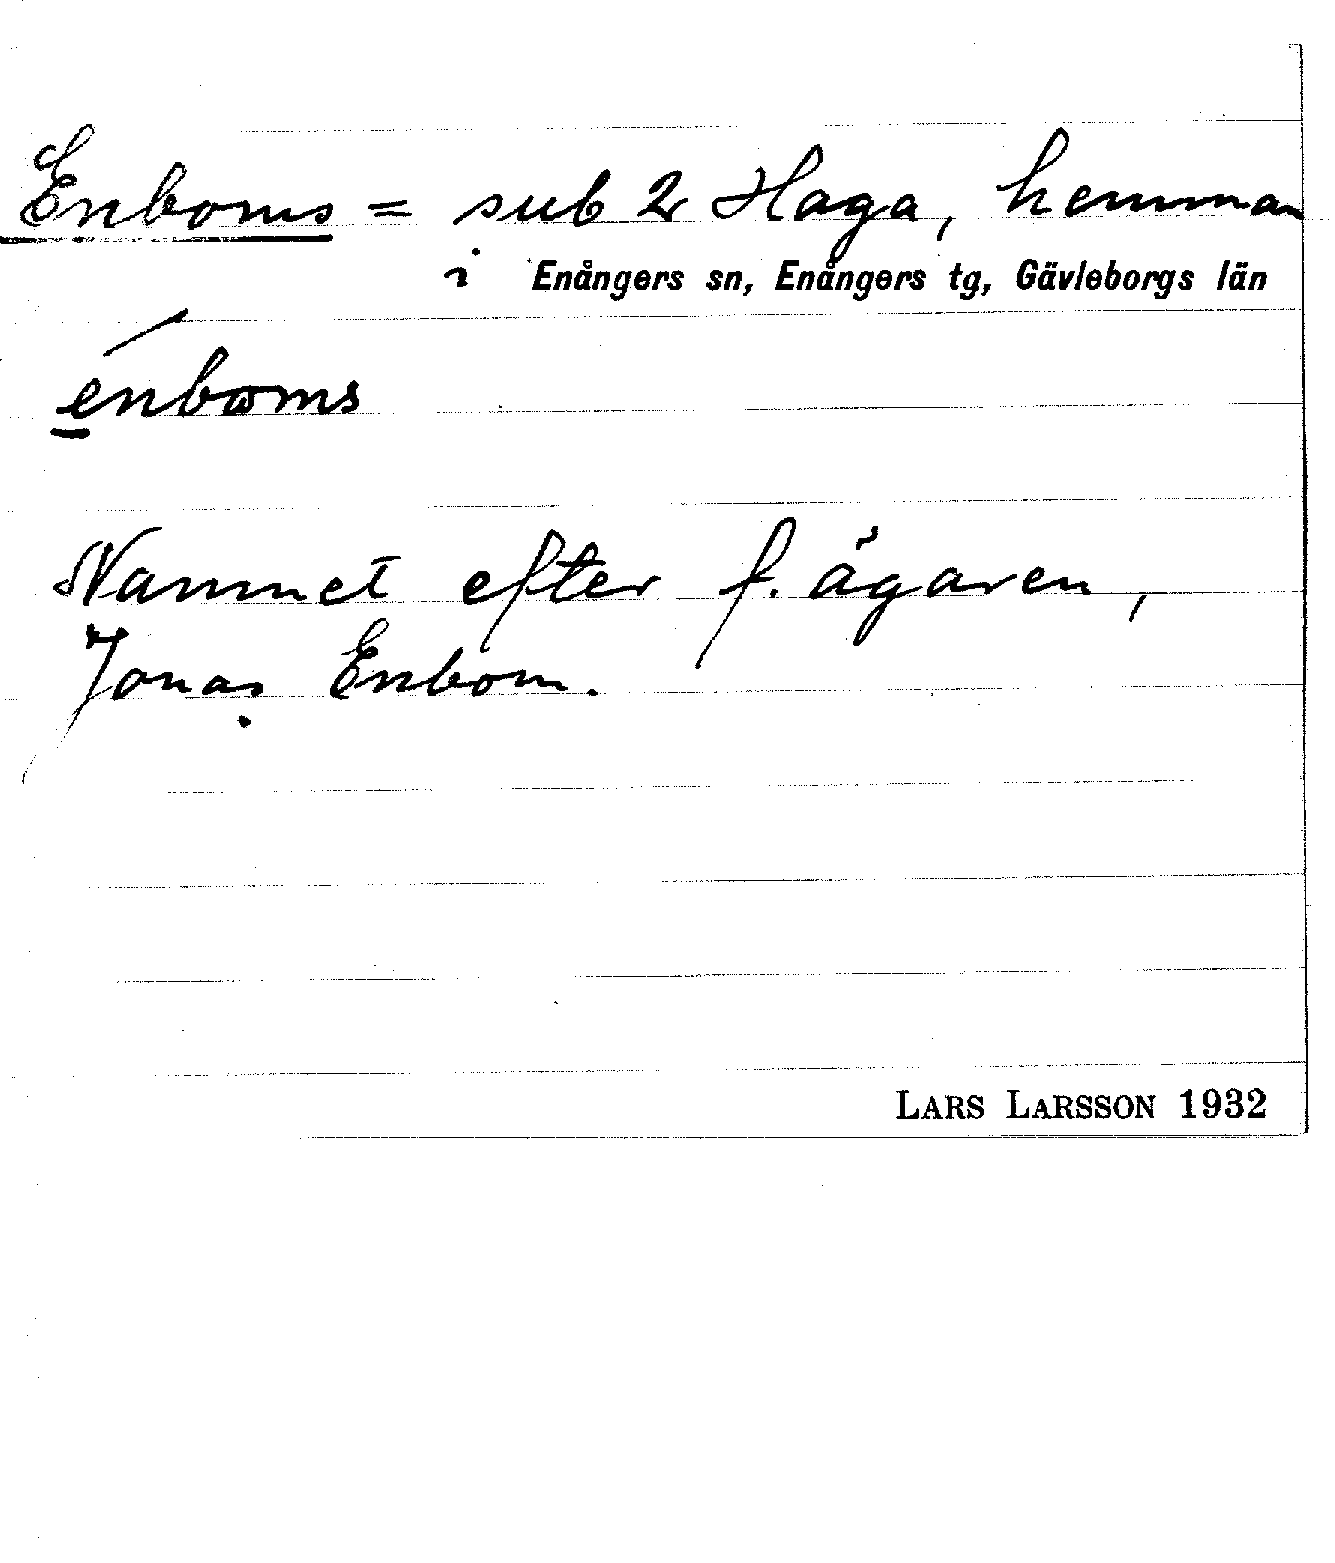 Enboms = sub 2 Haga, hemman
i Enångers sn, Enångers tg, Gävleborgs län
énboms
Namnet efter f. ägaren,
Jonas Enbom.
LARS LARSSON 1932